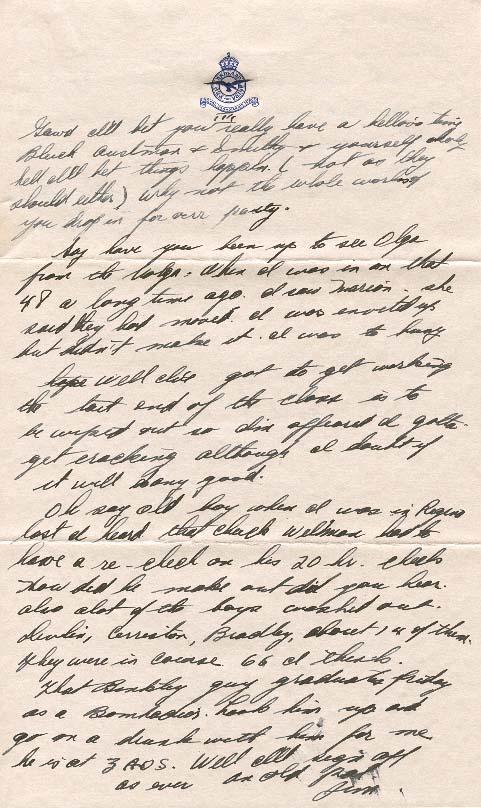 Gawd I'll bet you really have a hellova time
Bluck Austman & Smitty & yourself
hell I'll bet things happen. ( not as they
should either.) Why not the whole works of
you drop in for our party.
Say have you been up to see Olga
from the . When I was in on that
48 a long time ago. I saw Marion. She
said they had moved. I was invited up
but didn't make it. I was to busy
Well Clive got to get working
the tail end of the class is to
be wiped out so I'm affraid I gotta
get cracking although I doubt if
it will do any good.
Oh say old boy when I was in Regina
last I heard that Chuck Wellman had to
have a re-check on his 20 hr. check
How did he make out did you hear.
also alot of the boys washed out.
Devlin, , Bradley, about 14 of them.
they were in course 66 I think.
That guy graduates friday
as a Bombadier. Look him up and
go on a drunk with him for me
he is at 3 AOS. Well I'll sign off
as ever an old pal
Jim.